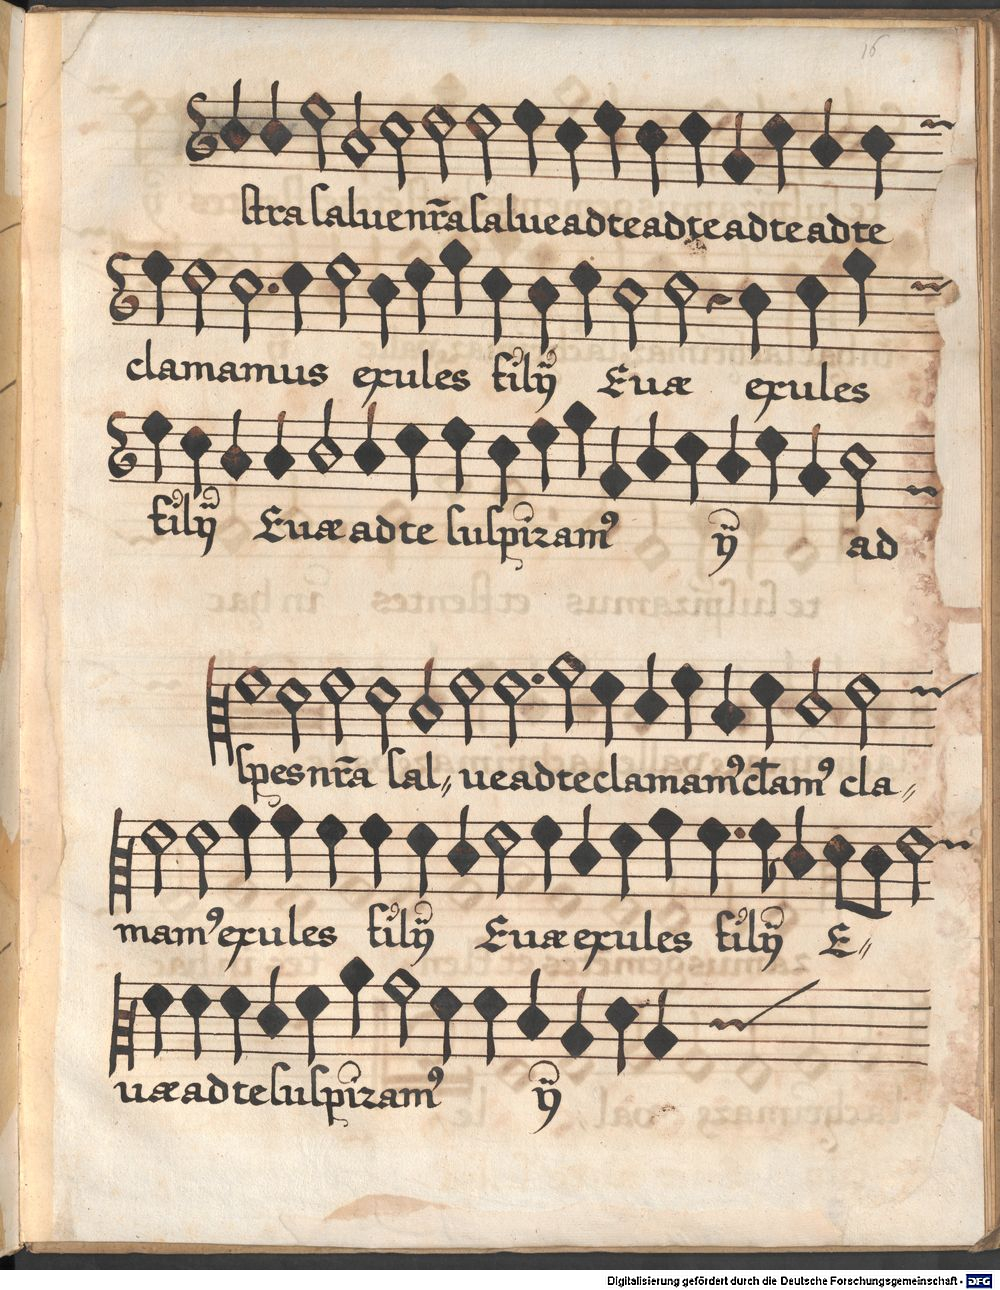 16
stra salue nr̄a salue ad te ad te ad te ad te
clamamus exules filȳ Euæ exules
filȳ Euæ ad te suspiram⁹ ȳ ad
spes nr̄a sal〃 ue ad te clamam⁹ clam⁹ cla〃
mam⁹ exules filȳ Euæ exules filȳ E〃
uæ ad te suspiram⁹ ȳ
Digitalisierung gefördert durch die Deutsche Forschungsgemeinschaft - DFG